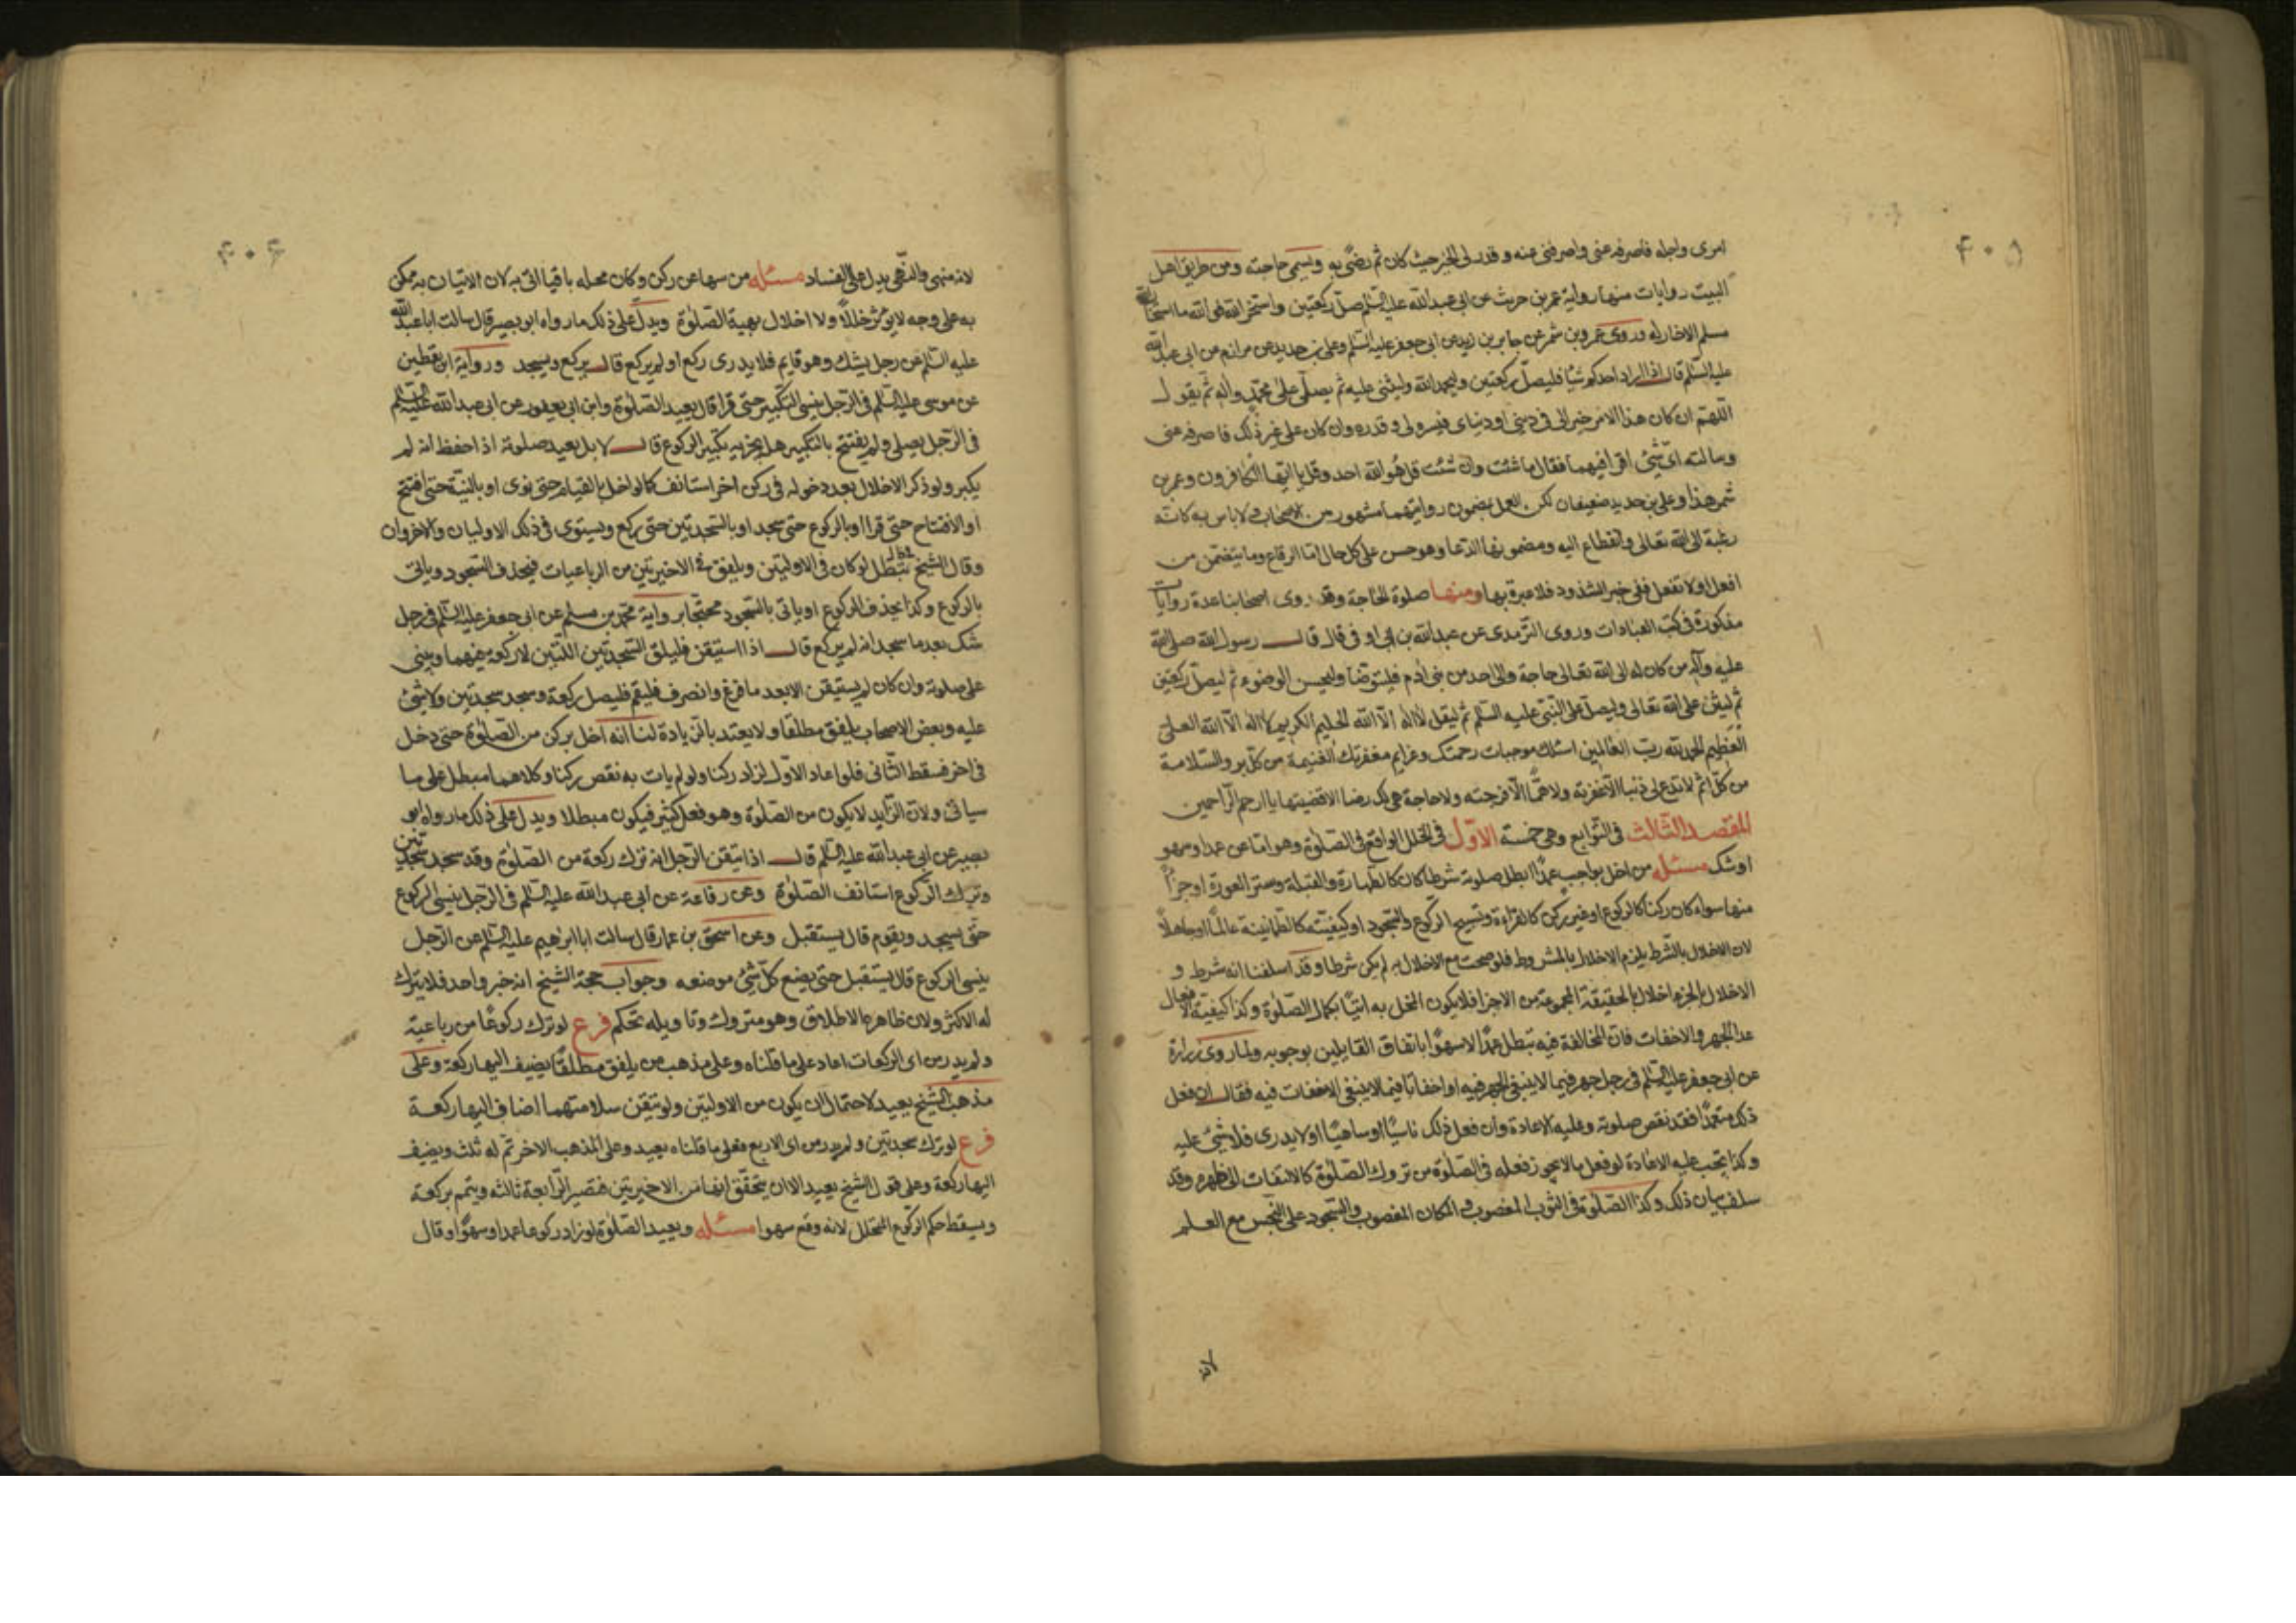 ۴۰۵
امری واجله فاصرفه عنی واصرفنی عنه وقدر لی الخیر حیث کان ثم رضنی به ویسمی حاجته ومن طریق اهل
البیت روایات منها روایة عمرو بن حریث عن ابی عبدالله علیه السلم صل رکعتین واستخر الله فوالله ما استخار الله
مسلم الا خار له وروی عمرو بن شمر عن جابر بن زید عن ابی جعفر علیه السلم وعلی بن حدید عن مرازم عن ابی عبدالله
علیه السلم قال اذا اراد احدکم شیئا فلیصل رکعتین ولیحمد الله ولیثنی علیه ثم یصلی علی محمد واله ثم یقول
اللهم ان کان هذا الامر خیرا لی فی دینی او دنیای فیسره لی وقدره وان کان علی غیر ذلک فاصرفه عنی
وسالته ای شیٔ اقرأ فیهما فقال ما شئت وان شئت قل هو الله احد وقل یا ایها الکافرون وعمرو بن
شمر هذا وعلی بن حدید ضعیفان لکن العمل بمضمون روایتهما مشهور من الاصحاب ولا باس به کانه
رغبة الی الله تعالی وانقطاع الیه ومضمونها الدعا وهو حسن علی کل حال اما الرقاع وما یتضمن من
افعل او لا تفعل ففی خبر الشذوذ فلا عبرة بها ومنها صلوة الحاجة وقد روی اصحابنا عدة روایات
مذکورة فی کتب العبادات وروی الترمذی عن عبدالله بن ابی اوفی قال قال رسول الله صلی الله
علیه وآله من کان له الی الله تعالی حاجة والی احد من بنی ادم فلیتوضا ولیحسن الوضوء ثم لیصل رکعتین
ثم لیثن علی الله تعالی ولیصل علی النبی علیه السلم ثم لیقل لا اله الا الله الحلیم الکریم لا اله الا الله العلی
العظیم الحمد لله رب العالمین اسئلک موجبات رحمتک وعزایم مغفرتک الغنیمة من کل بر والسلامة
من کل اثم لا تدع لی ذنبا الا غفرته ولا هما الا فرجته ولا حاجة هی لک رضا الا قضیتها یا ارحم الراحمین
المقصد الثالث فی التوابع وهی خمسة الاول فی الخلل الواقع فی الصلوة وهو اما عن عمد او سهو
او شک مسئله من اخل بواجب عمدا ابطل صلوته شرطا کان کالطهارة والقبلة وستر العورة او جزءا
منها سواء کان رکنا کالرکوع او غیر رکن کالقراءة وتسبیح الرکوع والسجود او کیفیته کالطمانینة عالما او جاهلا
لان الاخلال بالشرط یلزم الاخلال بالمشروط فلو صحت مع الاخلال به لم یکن شرطا وقد اسلفنا انه شرط و
الاخلال بالجزء اخلال بالحقیقة المجموعة من الاجزا فلا یکون المخل به اتیا بکمال الصلوة وکذا کیفیة الافعال
عدا الجهر والاخفات فان المخالفة فیه تبطل عمدا لا سهوا باتفاق القایلین بوجوبه ولما روی زرارة
عن ابی جعفر علیه السلم فی رجل جهر فیما لا ینبغی الجهر فیه او اخفاتا فیما لا ینبغی الاخفات فیه فقال ان فعل
ذلک متعمدا فقد نقص صلوته وعلیه الاعادة وان فعل ذلک ناسیا او ساهیا او لا یدری فلا شیٔ علیه
وکذا یجب علیه الاعادة لو فعل ما لا یجوز فعله فی الصلوة من تروک الصلوة کالالتفات الی ظهره وقد
سلف بیان ذلک وکذا الصلوة فی الثوب المغصوب والمکان المغصوب والسجود علی النجس مع العلم
لانه
۴۰۶
لانه منهی والنهی یدل علی الفساد مسئله من سها عن رکن وکان محله باقیا اتی به لان الاتیان به ممکن
به علی وجه لا یؤثر خللا ولا اخلال بهیة الصلوة ویدل علی ذلک ما رواه ابو بصیر قال سالت ابا عبدالله
علیه السلم عن رجل یشک وهو قایم فلا یدری رکع او لم یرکع قال یرکع ویسجد وروایة ابن یقطین
عن موسی علیه السلم فی الرجل ینسی التکبیر حتی قرا قال یعید الصلوة وابن ابی یعفور عن ابی عبدالله علیه السلم
فی الرجل یصلی ولم یفتتح بالتکبیر هل یجزیه تکبیر الرکوع قال لا بل یعید صلوته اذا حفظ انه لم
یکبر ولو ذکر الاخلال بعد دخوله فی رکن اخر استانف کما لو اخل بالقیام حتی نوی او بالنیة حتی افتتح
او الافتتاح حتی قرا او بالرکوع حتی سجد او بالسجدتین حتی رکع ویستوی فی ذلک الاولیان والاخروان
وقال الشیخ تبطل لو کان فی الاولیتین ویلفق فی الاخیرتین من الرباعیات فیحذف السجود ویاتی
بالرکوع وکذا یحذف الرکوع او یاتی بالسجود محتجا بروایة محمد بن مسلم عن ابی جعفر علیه السلم فی رجل
شک بعد ما سجد انه لم یرکع قال اذا استیقن فلیلق السجدتین اللتین لا رکعة لهما ویبنی
علی صلوته وان کان لم یستیقن الا بعد ما فرغ وانصرف فلیقم فلیصل رکعة وسجد سجدتین ولا شیٔ
علیه وبعض الاصحاب یلفق مطلقا ولا یعتد بالزیادة لنا انه اخل برکن من الصلوة حتی دخل
فی اخر فسقط الثانی فلو اعاد الاول لزاد رکنا ولو لم یات به نقص رکنا وکلاهما مبطل علی ما
سیاتی ولان الزاید لا یکون من الصلوة وهو فعل کثیر فیکون مبطلا ویدل علی ذلک ما رواه ابو
بصیر عن ابی عبدالله علیه السلم قال اذا تیقن الرجل انه ترک رکعة من الصلوة وقد سجد سجدتین
وترک الرکوع استانف الصلوة وعن رفاعة عن ابی عبدالله علیه السلم فی الرجل ینسی الرکوع
حتی یسجد ویقوم قال یستقبل وعن اسحق بن عمار قال سالت ابا ابرهیم علیه السلم عن الرجل
ینسی الرکوع قال یستقبل حتی یضع کل شیٔ موضعه وجواب حجة الشیخ انه خبر واحد فلا یترک
له الاکثر ولان ظاهره الاطلاق وهو متروک وتاویله تحکم فرع لو ترک رکوعا من رباعیة
ولم یدر من ای الرکعات اعاد علی ما قلناه وعلی مذهب من یلفق مطلقا یضیف الیها رکعة وعلی
مذهب الشیخ یعید لاحتمال ان یکون من الاولیتین ولو تیقن سلامتهما اضاف الیها رکعة
فرع لو ترک سجدتین ولم یدر من ای الاربع فعلی ما قلناه یعید وعلی المذهب الاخر تم له ثلث ویضیف
الیها رکعة وعلی قول الشیخ یعید الا ان یتحقق انهما من الاخیرتین فتصیر الرابعة ثالثه ویتمم برکعة
ویسقط حکم الرکوع المتخلل لانه وقع سهوا مسئله ویعید الصلوة لو زاد رکوعا عمدا وسهوا وقال